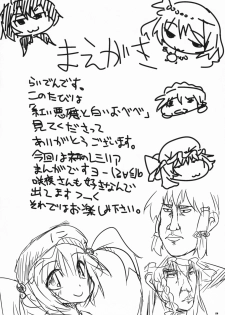 まえがき
らいでんです。
このたびは
「紅い悪魔と白いおべべ」
見てくださって
ありがとうございます。
今回は初レミリア
まんがですヨー
咲夜さんも好きなんで
出てますっく
それではお楽しみ下さい。